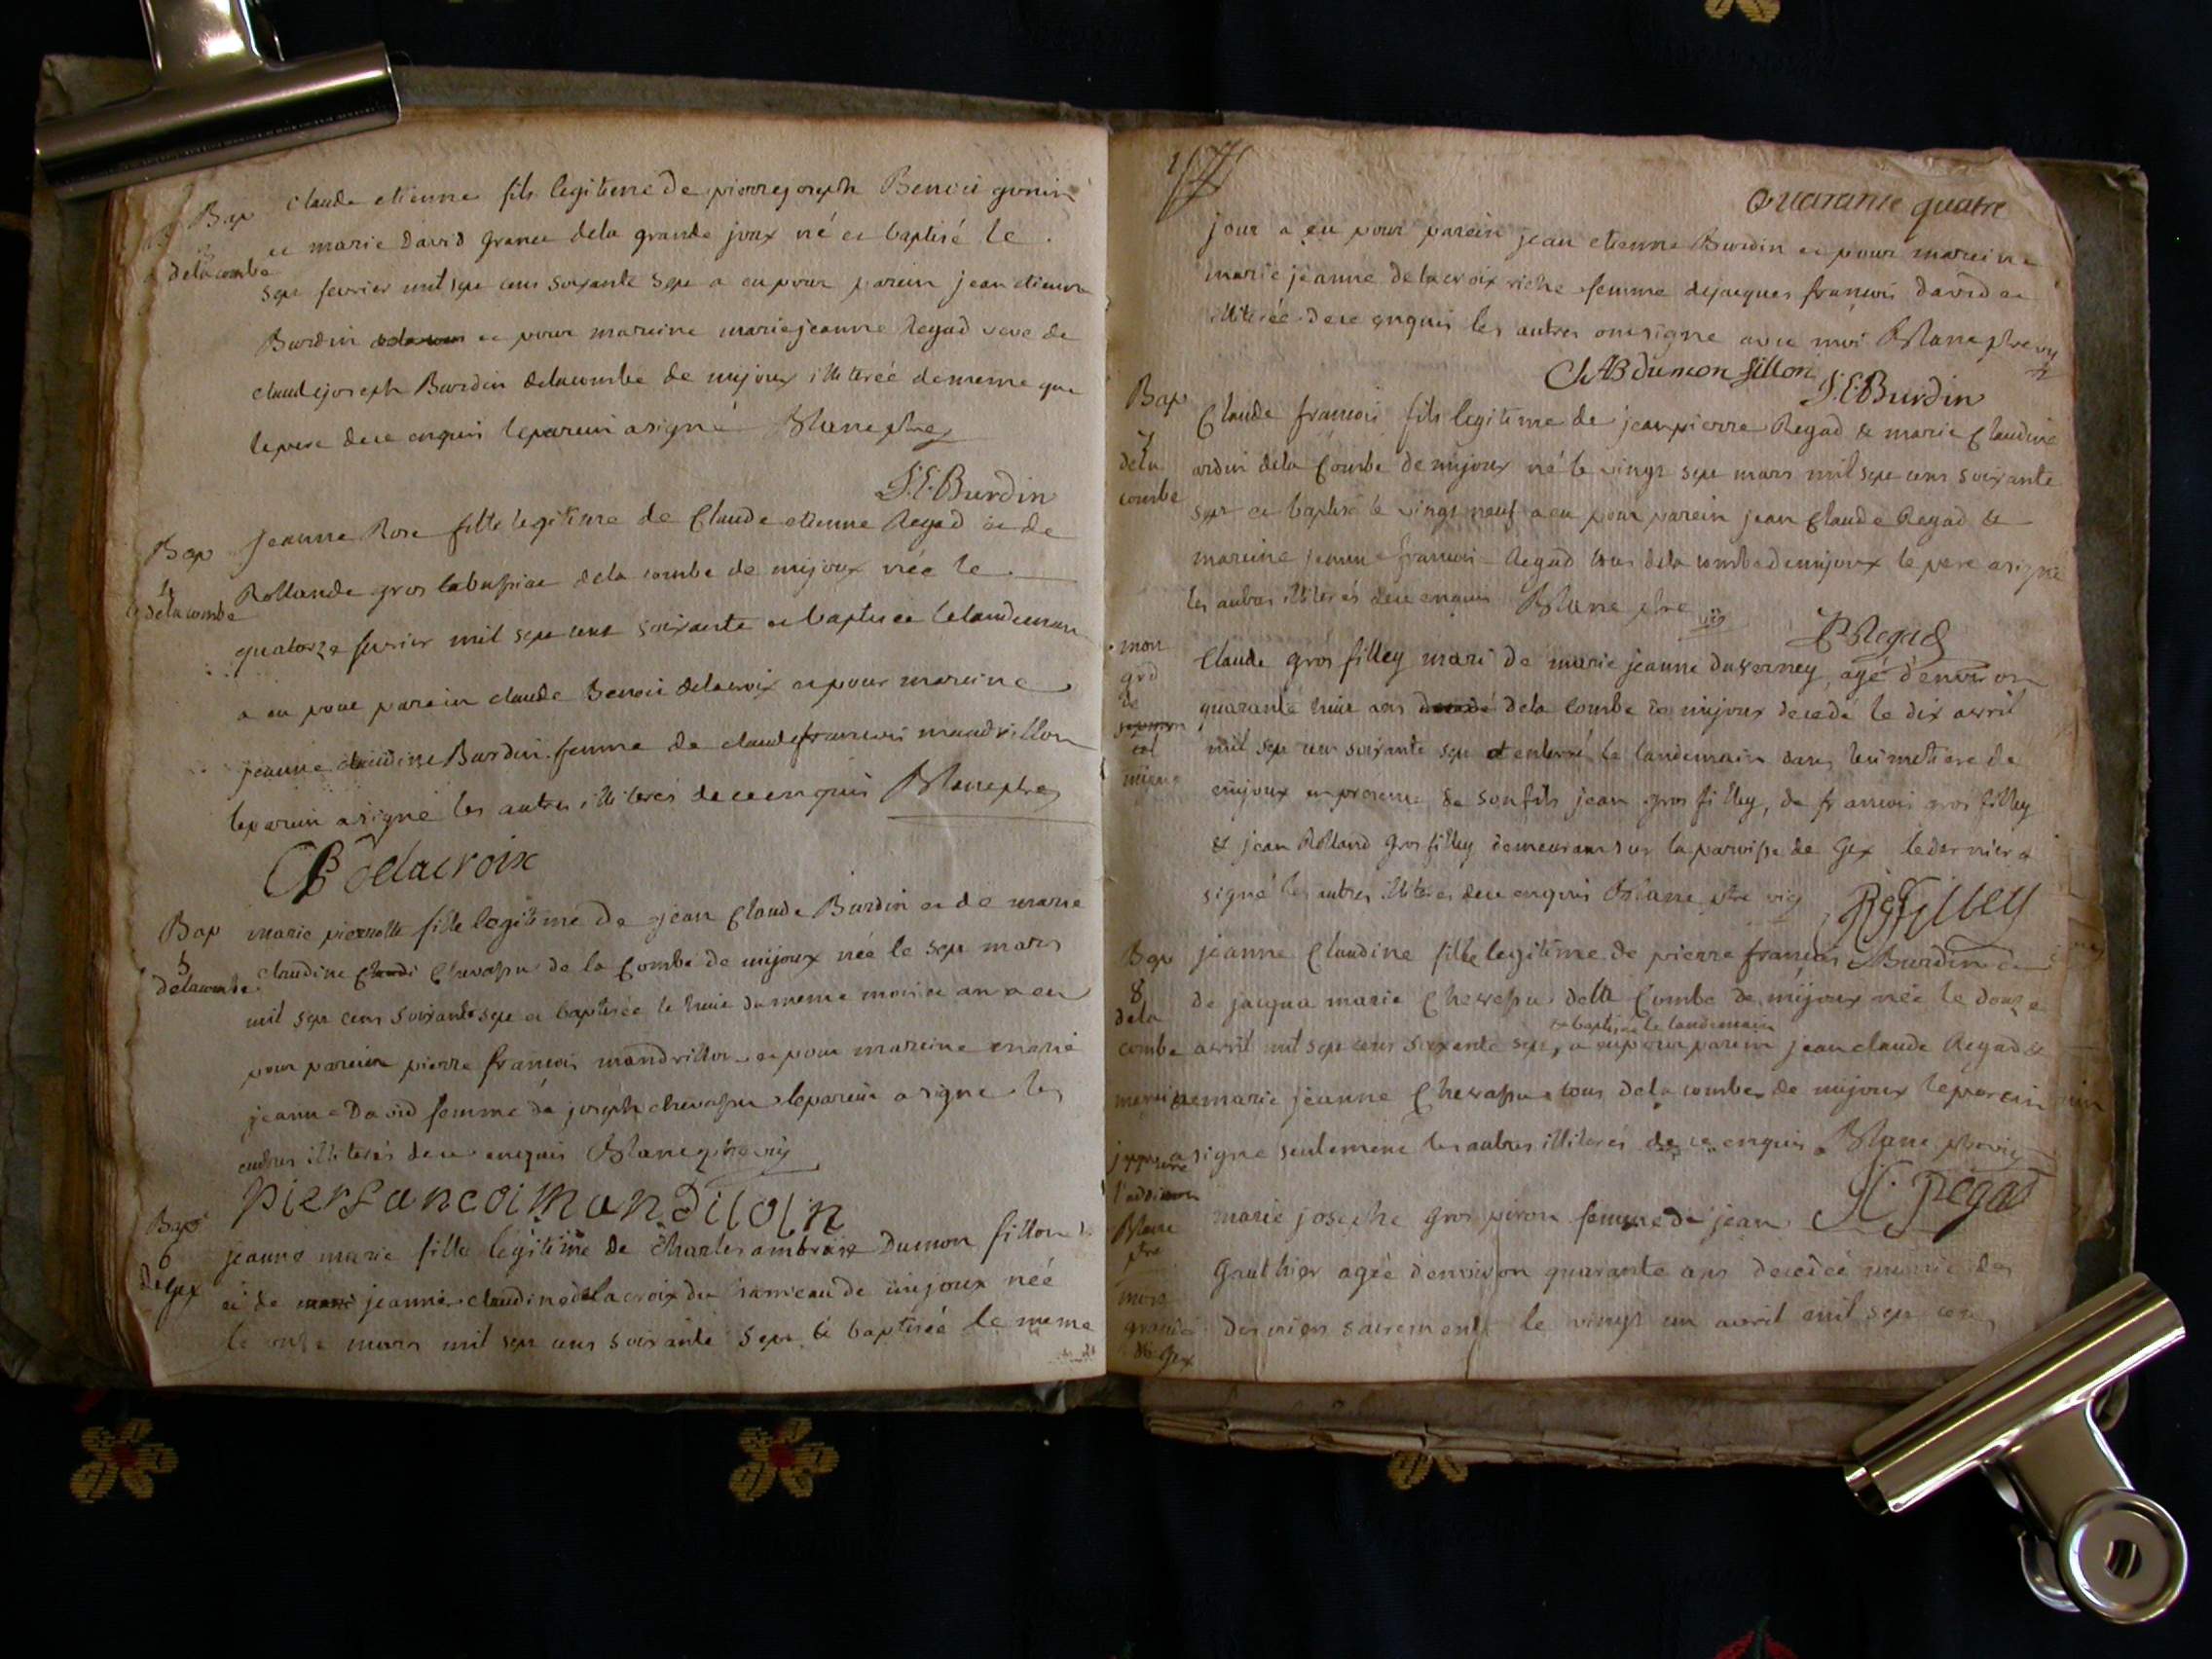 Bap
3
delacombe
claude etienne fils legitime de pierre joseph Benoit gonin
et marie david grance dela grande joux né et baptisé le
sept fevrier mil sept cens soixante sept a eu pour parein jean etienne
Burdin et pour mareine marie jeanne Regad veve de
claudejoseph Burdin delacombe de mijoux illiterée dememe que
lepere dece enquis leparein asigné Blanc ptre
J.E.Burdin
Bap
4
delacombe
jeanne Rose fille legitime de Claude etienne Regad et de
Rollande gros labussiae dela combe de mijoux née le
quatorze fevrier mil sept cens soixante et baptisée lelandemain
a eu pour parein claude Benoit delacroix et pour mareine
jeanne claudine Burdin femme de claudefrancois mandrillon
leparein asigné les autres illiterés dece enquis Blanc ptre
CB delacroix
Bap
5
delacombe
marie pierrette fille legitime de jean Claude Burdin et de marie
claudine Chevassu de la Combe de mijoux née le sept mars
mil sept cens soixantesept et baptisée le huit du meme mois et an a eu
pour parein pierre francois mandrillon et pour mareine marie
jeanne David femme de joseph chevassu leparein a signé les
autres illiterés dece enquis Blanc ptre vic
Bap
6
de Gex
jeanne marie fille legitime de Charles ambroise Dumon fillon
et de jeanne claudine delacroix du hameau de mijoux née
le onze mars mil sept cens soixante sept & baptisée le meme
Quarante quatre
jour a eu pour parein jean etienne Burdin et pour mareine
marie jeanne delacroix riche femme dejacques francois david et
illiterée dece enquis les autres ont signe avec moi Blanc ptre vic
ChABdumon fillon
J.E.Burdin
Bap
7
dela
combe
Claude francois fils legitime de jean pierre Regad & marie Claudine
ardin dela Combe de mijoux né le vingt sept mars mil sept cens soixante
sept et baptisé le vingt neuf a eu pour parein jean Claude Regad &
mareine jeanne francoi Regad tous dela combe demijoux le pere a signé
les autres illiterés dece enquis Blanc ptre vic
JP Regad
mort
grd
de
Claude gros filley mari de marie jeanne duverney, agé d'environ
quarante huit ans dela Combe de mijoux decedé le dix avril
mil sept cens soixante sept et enterré le landemain dans le cimetiere de
mijoux en présence de son fils jean gros filley, de francois gros filley
& jean Rolland Gros filley demeurant sur la paroisse de Gex le dernier a
signé les autres illiterés dece enquis Blanc ptre vic
RGFilley
Bap
8
dela
combe
jeanne Claudine fille legitime de pierre francois Burdin &
de jaqua marie Chevassu dela Combe de mijoux née le douze
& baptisée le landemain
avril mil sept cens soixante sept, a eu pour parein jean claude Regad &
mareine marie jeanne Chevassu tous dela combe de mijoux leparein
a signe seulement les autres illiterés de ce enquis Blanc ptre vic
japprouve
l'addition
Blanc
ptre
JC Regad
mort
grande
de Gex
marie josephe Gros piron femme de jean
Gauthier agée denviron quarante ans decedée munie des
derniers sacrements le vingt un avril mil sept cens